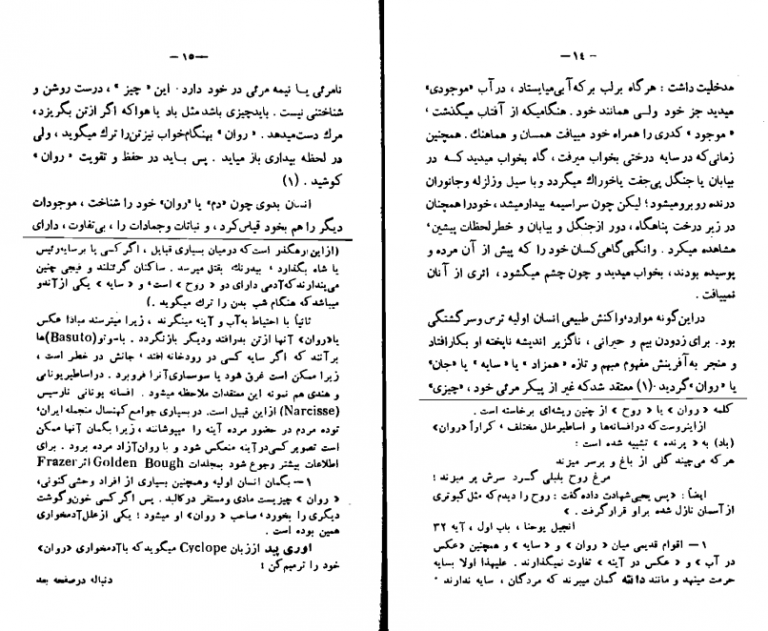 - ١٤ -
مدخلیت داشت : هرگاه برلب برکه‌آبی‌میایستاد ، درآب «موجودی»
میدید جز خود ولی همانند خود. هنگامیکه از آفتاب میگذشت ،
« موجود » کدری را همراه خود مییافت همسان و هماهنگ. همچنین
زمانی‌که در سایه درختی بخواب میرفت، گاه بخواب میدید که در
بیابان یا جنگل پی‌جفت یاخوراك میگردد وبا سیل وزلزله وجانوران
درنده روبرومیشود؛ لیکن چون سراسیمه بیدارمیشد، خودراهمچنان
در زیر درخت پناهگاه، دور ازجنگل و بیابان و خطر لحظات پیشین،
مشاهده میکرد. وانگهی‌گاهی‌کسان خود را که پیش از آن مرده و
پوسیده بودند، بخواب میدید و چون چشم میگشود، اثری از آنان
نمییافت.
دراین‌گونه موارد، واکنش طبیعی انسان اولیه ترس وسرگشتگی
بود. برای زدودن بیم و حیرانی ، ناگزیر اندیشه ناپخته او بکارافتاد
و منجر به‌آفرینش مفهوم مبهم و تازه «همزاد» یا «سایه» یا «جان»
یا «روان» گردید.(١) معتقد شدکه غیر از پیکر مرئی خود، «چیزی»
کلمه «روان» یا «روح» از چنین ریشه‌ای برخاسته است .
ازاینروست‌که درافسانه‌ها و اساطیرملل مختلف ، کراراً «روان»
(باد) به « پرنده » تشبیه شده است :
هرکه می‌چیند گلی از باغ و برسر میزند
مرغ روح بلبلی گسرد سرش پر میزند ؛
ایضاً : «پس یحیی‌شهادت داده‌گفت : روح را دیدم‌که مثل‌کبوتری
ازآسمان نازل شده براو قرارگرفت. »
انجیل یوحنا ، باب اول ، آیه ٣٢
١ – اقوام قدیمی میان «روان » و «سایه » و همچنین «عکس
در آب » و « عکس در آینه » تفاوت نمیگذارند . علیهذا اولا بسایه
حرمت مینهد و مانند دانته گمان میبرند که مردگان ، سایه ندارند .
— ١٥ —
نامرئی یا نیمه مرئی در خود دارد . این « چیز » ، درست روشن و
شناختنی نیست . بایدچیزی باشد مثل باد یا هواکه اگر ازتن بگریزد،
مرگ دست‌میدهد. « روان » بهنگام‌خواب نیزتن‌را ترك میگوید ، ولی
در لحظه بیداری باز میاید . پس باید در حفظ و تقویت «روان»
کوشید . (١)
انسان بدوی چون «دم» یا «روان» خود را شناخت ، موجودات
دیگر را هم بخود قیاس‌کرد ، و نباتات وجمادات را ، بی‌تفاوت ، دارای
(ازاین‌رهگذر است‌که درمیان بسیاری قبایل ، اگر کسی پا برسایه‌رئیس
یا شاه بگذارد ، بیدرنگ بقتل میرسد . ساکنان گرئنلند و فیجی چنین
می‌پندارندکه‌آدمی دارای دو « روح » است، و « سایه » یکی ازآندو
میباشدکه هنگام شب بدن را ترك میگوید .)
ثانیاً با احتیاط به‌آب و آینه مینگرند ، زیرا میترسند مبادا عکس
یا«روان» آنها ازتن بدرافتد ودیگر بازنگردد. باسوتو(Basuto)ها
برآنند که اگر سایه کسی در رودخانه افتد ، جانش در خطر است ،
زیرا ممکن است غرق شود یا سوسماری‌آنرا فروبرد . دراساطیریونانی
و هندی هم نمونه این معتقدات ملاحظه میشود . افسانه یونانی نارسیس
(Narcisse) ازاین قبیل است. دربسیاری جوامع کهنسال منجمله ایران،
توده مردم در حضور مرده آینه را میپوشانند ، زیرا بگمان آنها ممکن
است تصویر کسی‌درآینه منعکس شود و با روان‌آزاد مرده برود . برای
اطلاعات بیشتر رجوع شود بمجلدات Golden Bough اثر Frazer
١ – بگمان انسان اولیه وهمچنین بسیاری از افراد وحشی‌کنونی،
« روان » چیزیست مادی ومستقر درکالبد. پس اگرکسی خون‌وگوشت
دیگری را بخورد، صاحب «روان» او میشود ؛ یکی ازعلل‌آدمخواری
همین بوده است .
اوری پید اززبان Cyclope میگویدکه باآدمخواری «روان»
خود را ترمیم‌کن ؛
دنباله درصفحه بعد